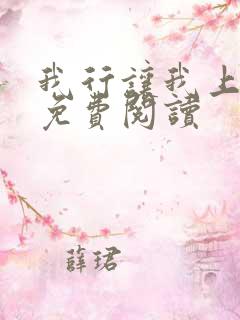 我行讓我上
免費閱讀
薛珺